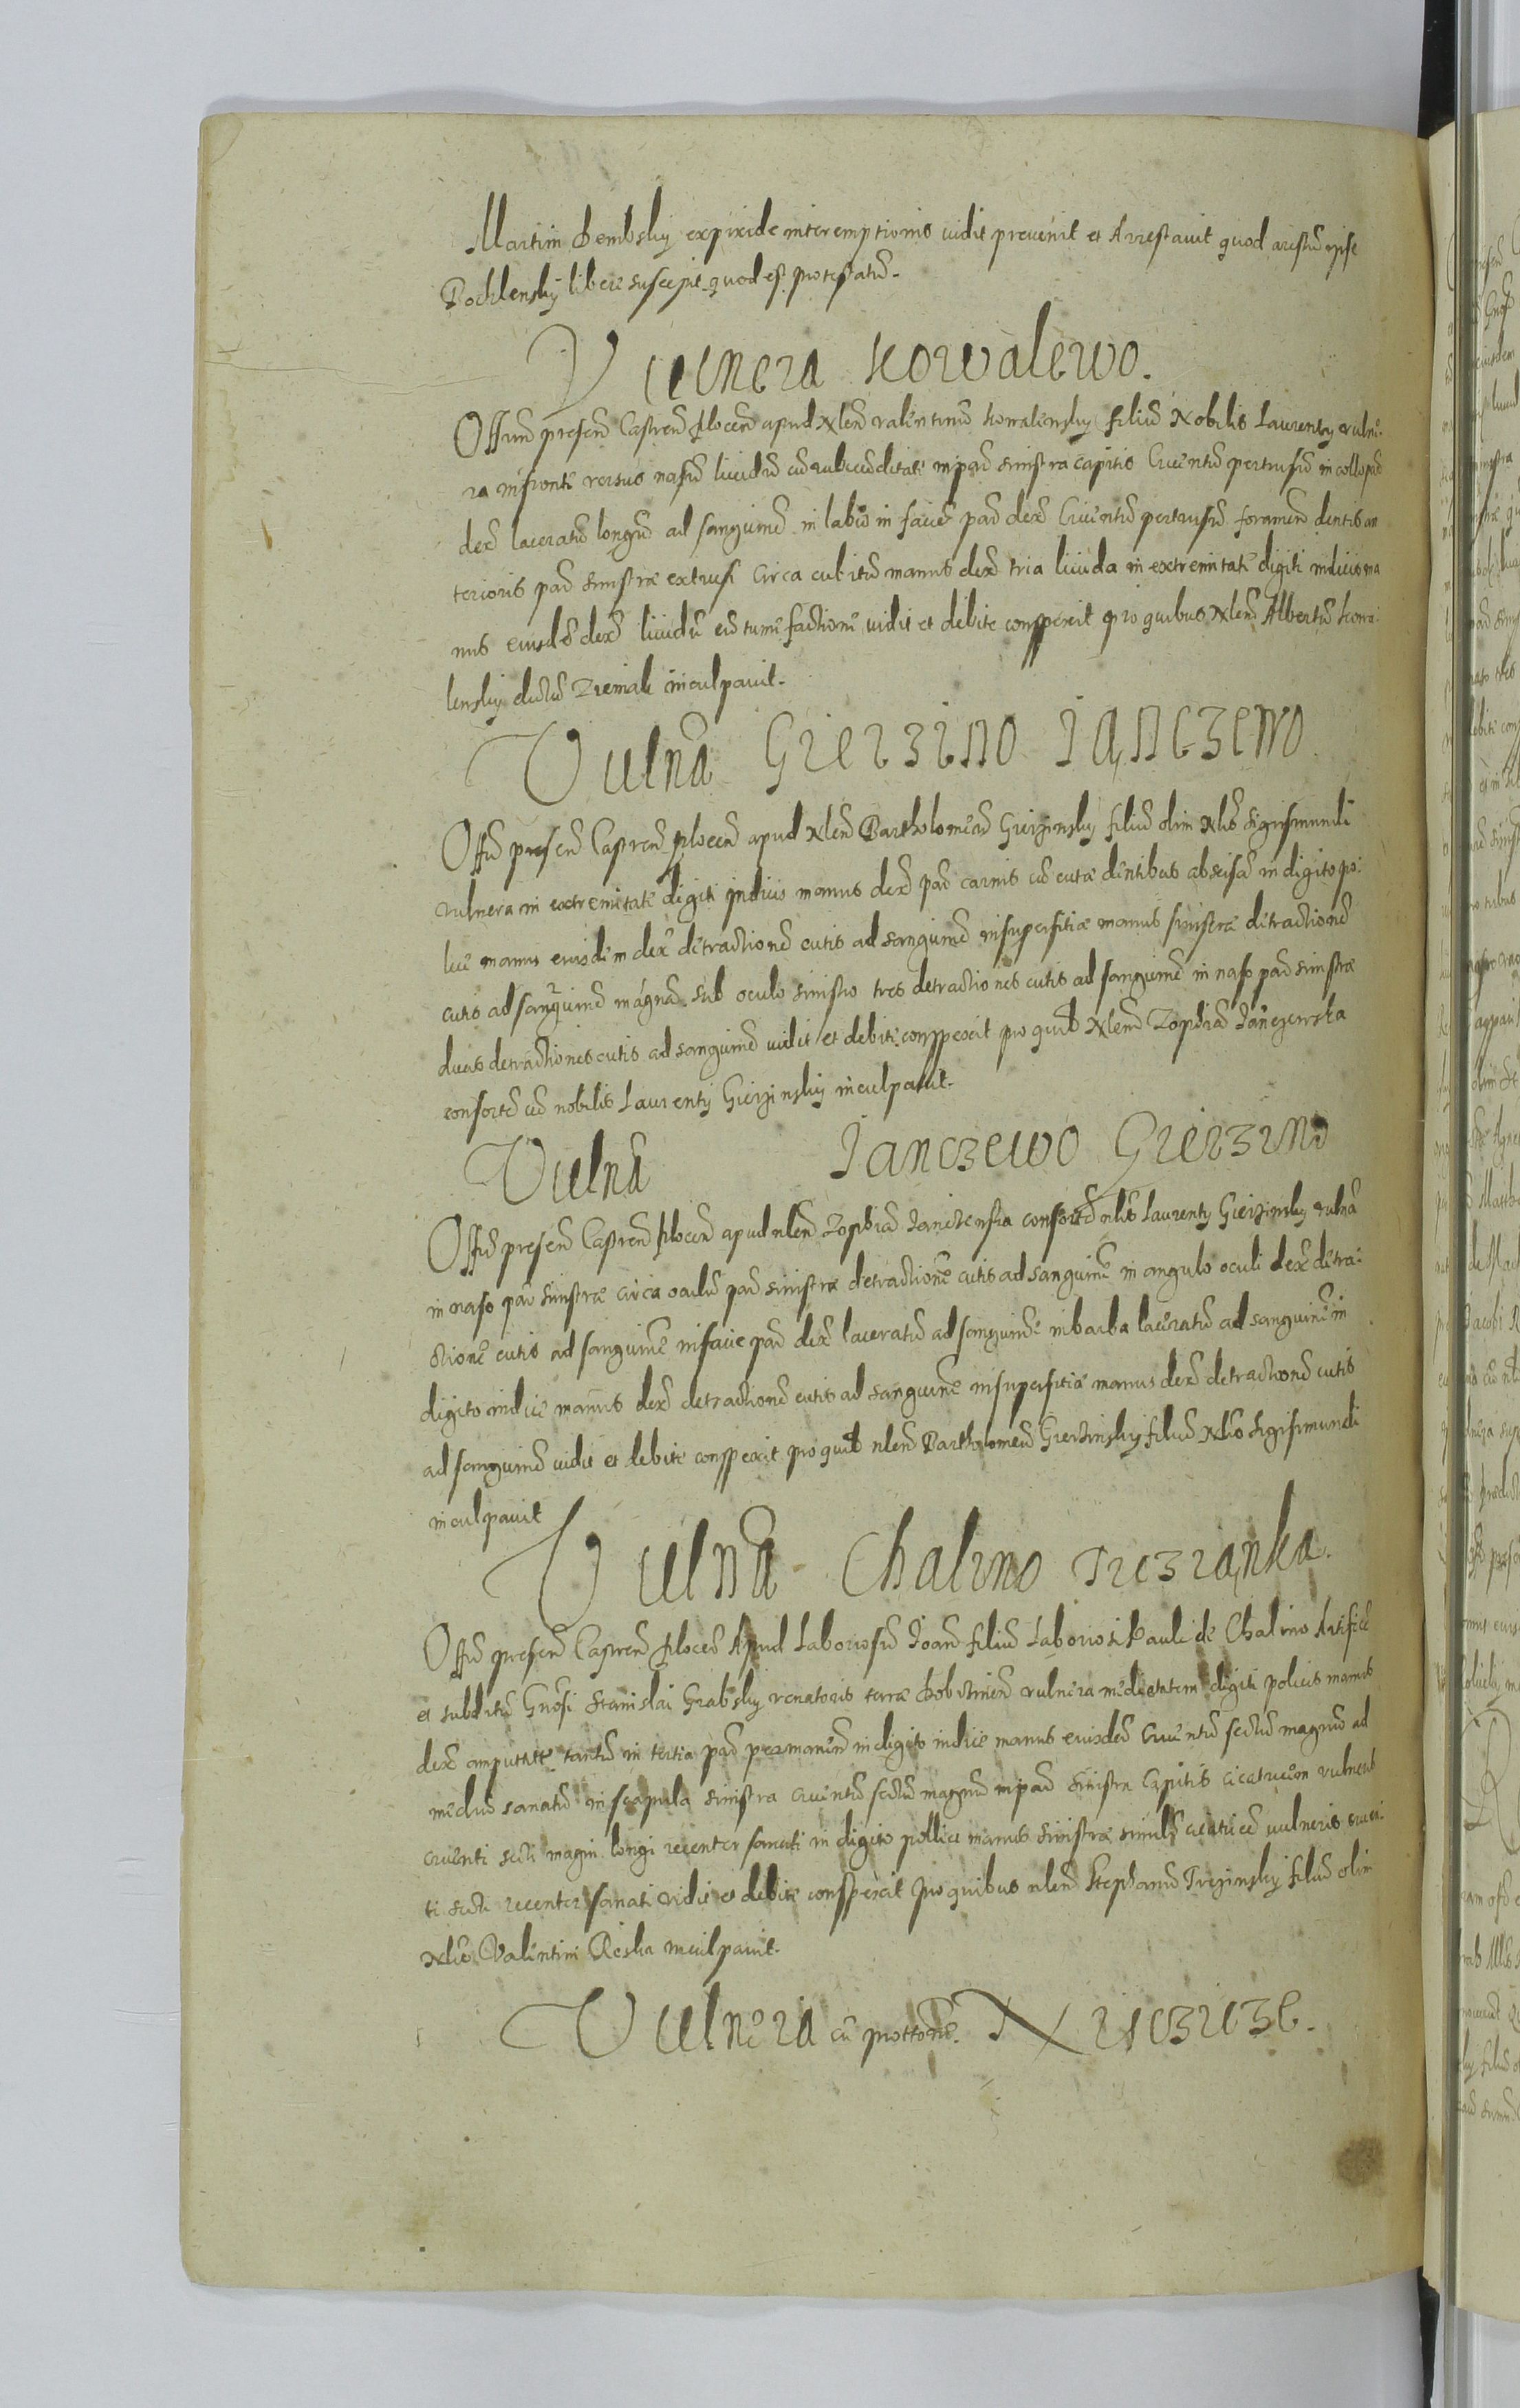 Martin Dembsky ex pixide interemptionis vidit prevenit et Arrestavit quod arestũ ipse
Pochlensky libere suscepit quod est protestatũ.
Vulnera Kowalewo.
Offm̃ presen̄ Castren̄ Plocen̄ apud Nlem̃ valentinũ Kowalensky filiũ Nobilis Laurenty vulne-
ra in fronte versus nasũ lividũ cũ rubicunditate in par̃ sinistra capitis Cruentũ pertusũ in collo par̃
dex̃ laceratũ longũ ad sanguinẽ in labio in facie par̃ dex̃ Cruentũ pertusũ foramen dentis an
terioris par̃ sinistræ extrusi Circa cubitũ manus dex̃ tria livida in extremitate digiti indicis ma
nus eiusdẽ dex̃ lividũ cũ tumefactione vidit et debite conspexit pro quibus Nlem̃ Albertũ Kowa-
lensky dictũ inculpavit.
Vulnã Gierzino Janczewo
Offũ presen̄ Castren̄ Plocen̄ apud Nlem̃ Bartholomeũ Gierzinsky filiũ olim Nlis Sigismundi
vulnera in extremitate digiti indicis manus dex̃ par̃ carnis cũ cute dentibus abscisã in digito po-
lice manus eiusdem dex̃ detractionẽ cutis ad sanguinẽ in superfitiæ manus sinistræ detractionẽ
cutis ad sanguinẽ magnã sub oculo sinistro tres detractiones cutis ad sanguinẽ in naso par̃ sinistræ
duas detractiones cutis ad sanguinẽ vidit et debite conspexit pro quib̃ Nlem̃ Zophiã Janczewska
consortẽ nobilis Laurenty Gierzinsky inculpavit.
Vulnã Janczewo Gierzino
Offũ presen̄ Castren̄ Plocen̄ apud nlem̃ Zophiã Janczewska consortẽ nlis Laurenty Gierzinsky vulnã
in naso par̃ sinistræ circa oculũ par̃ sinistræ detractionẽ cutis ad sanguinẽ in angulo oculi dex̃ detra-
ctionẽ cutis ad sanguinẽ in facie par̃ dex̃ laceratũ ad sanguinẽ in barba laceratũ ad sanguinẽ in
digito indice manus dex̃ detractionẽ cutis ad sanguinẽ in superfitiæ manus dex̃ detractionẽ cutis
ad sanguinẽ vidit et debite conspexit pro quib̃ nlem̃ Bartholomeũ Gierzinsky filiũ Nlis Sigismundi
inculpavit
Vulnã Chalino Trczianka.
Offũ presen̄ Castren̄ Plocen̄ Apud Laboriosũ Joan̄ filiũ Laboriosi Pauli de Chalino Artificẽ
et subditũ Gnosi Stanislai Grabsky venatoris terræ Dobrinen̄ vulnera medietatem digiti policis manus
dex̃ amputatæ tantũ in tertia par̃ permanen̄ in digito indice manus eiusdẽ cruentũ sectũ magnũ ad
mediũ sanatũ in scapula sinistra cruentũ sectũ magnũ in par̃ sinistra Capitis cicatricem vulneris
cruenti secti magni longi recenter sanati in digito pollice manus sinistræ simulẽ cicatricẽ vulneris cruen-
ti secti recenter sanati vidit et debite conspexit pro quibus nlem̃ Stephanũ Trczinsky filiũ olim
Nlis Valentini inculpavit.
Vulnera cũ prottone.